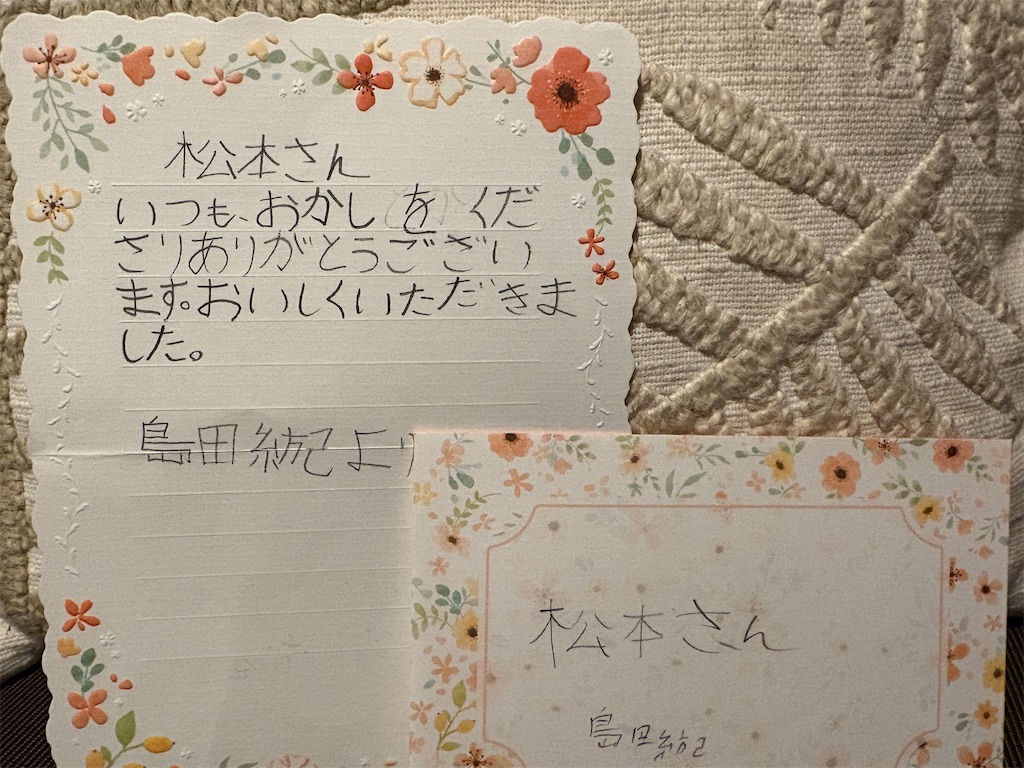 松本さん
いつも、おかしをくだ
さりありがとうござい
ます。おいしくいただきま
した。
島田紘己より
松本さん
島田紘己